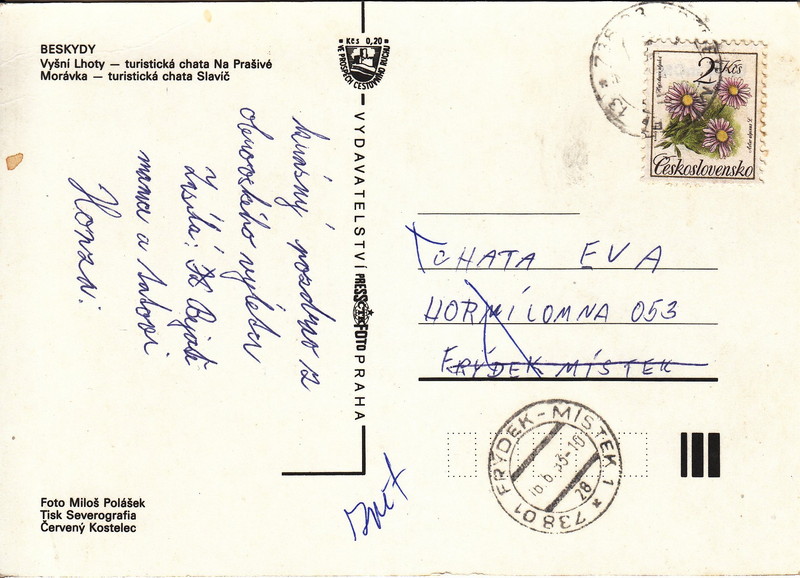 BESKYDY
Vyšní Lhoty — turistická chata Na Prašivé
Morávka — turistická chata Slavíč
Krásný pozdrav z
obrovského výletu
zasílá:
mama a tatou
Honza.
Foto Miloš Polášek
Tisk Severografia
Červený Kostelec
Kčs 0,20
VE PROSPĚCH CESTOVNÍHO RUCHU
VYDAVATELSTVÍ PRESSFOTO PRAHA
ČTK
2 Kčs
Aster alpinus L.
Československo
CHATA EVA
HORNÍ LOMNA 053
FRÝDEK MÍSTEK
FRÝDEK-MÍSTEK 1
28
* 738 01
Zpět